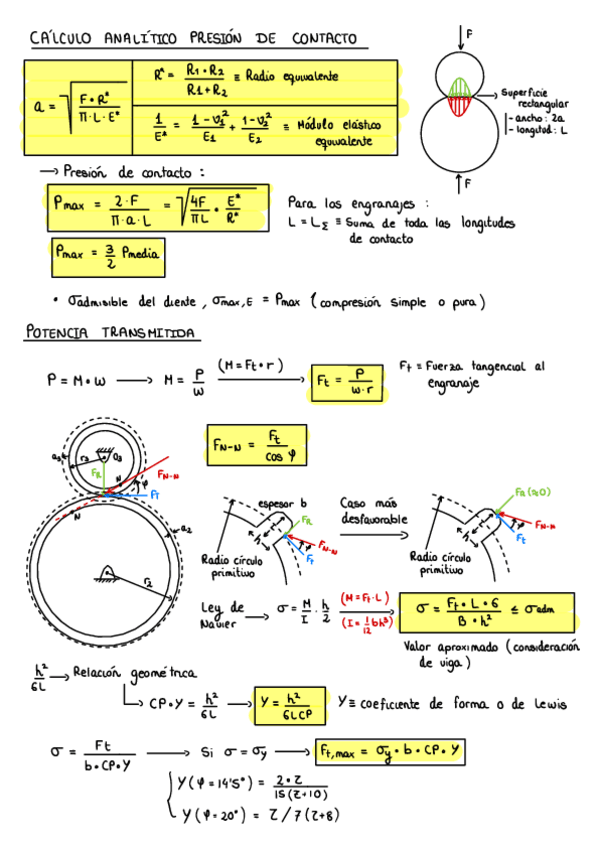 CÁLCULO ANALÍTICO PRESIÓN DE CONTACTO
a = √(F•R* / π•L•E*)
R* = R1•R2 / R1+R2 ≡ Radio equivalente
1/E* = 1-ν1²/E1 + 1-ν2²/E2 ≡ Módulo elástico equivalente
F
Superficie
rectangular
- ancho: 2a
- longitud: L
F
→ Presión de contacto :
Pmax = 2•F / π•a•L = √(4F/πL • E*/R*)
Para los engranajes :
L = LΣ ≡ Suma de toda las longitudes
de contacto
Pmax = 3/2 Pmedia
• σadmisible del diente , σmax,E = Pmax (compresión simple o pura)
POTENCIA TRANSMITIDA
P = M•w → M = P/w (M = Ft•r) → Ft = P / w•r
Ft ≡ Fuerza tangencial al
engranaje
FN-N = Ft / cos φ
a3 r3 O3 FR N FN-N φ FT
N a2 r2
espesor b
FR
h φ FN-N
Ft
Radio círculo
primitivo
Caso más
desfavorable
FR(≈0)
h φ FN-N
Ft
Radio círculo
primitivo
Ley de
Navier → σ = M/I • h/2 (M = Ft•L) (I = 1/12 bh³) → σ = Ft•L•6 / B•h² ≤ σadm
Valor aproximado (consideración
de viga)
h²/6L → Relación geométrica
CP•Y = h²/6L → Y = h²/6LCP Y ≡ coeficiente de forma o de Lewis
σ = Ft / b•CP•Y → Si σ = σy → Ft,max = σy•b•CP•Y
Y(φ = 14'5°) = 2•Z / 15(Z+10)
Y(φ = 20°) = Z / 7(Z+8)